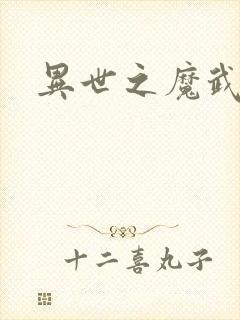 異世之魔武
十二喜丸子